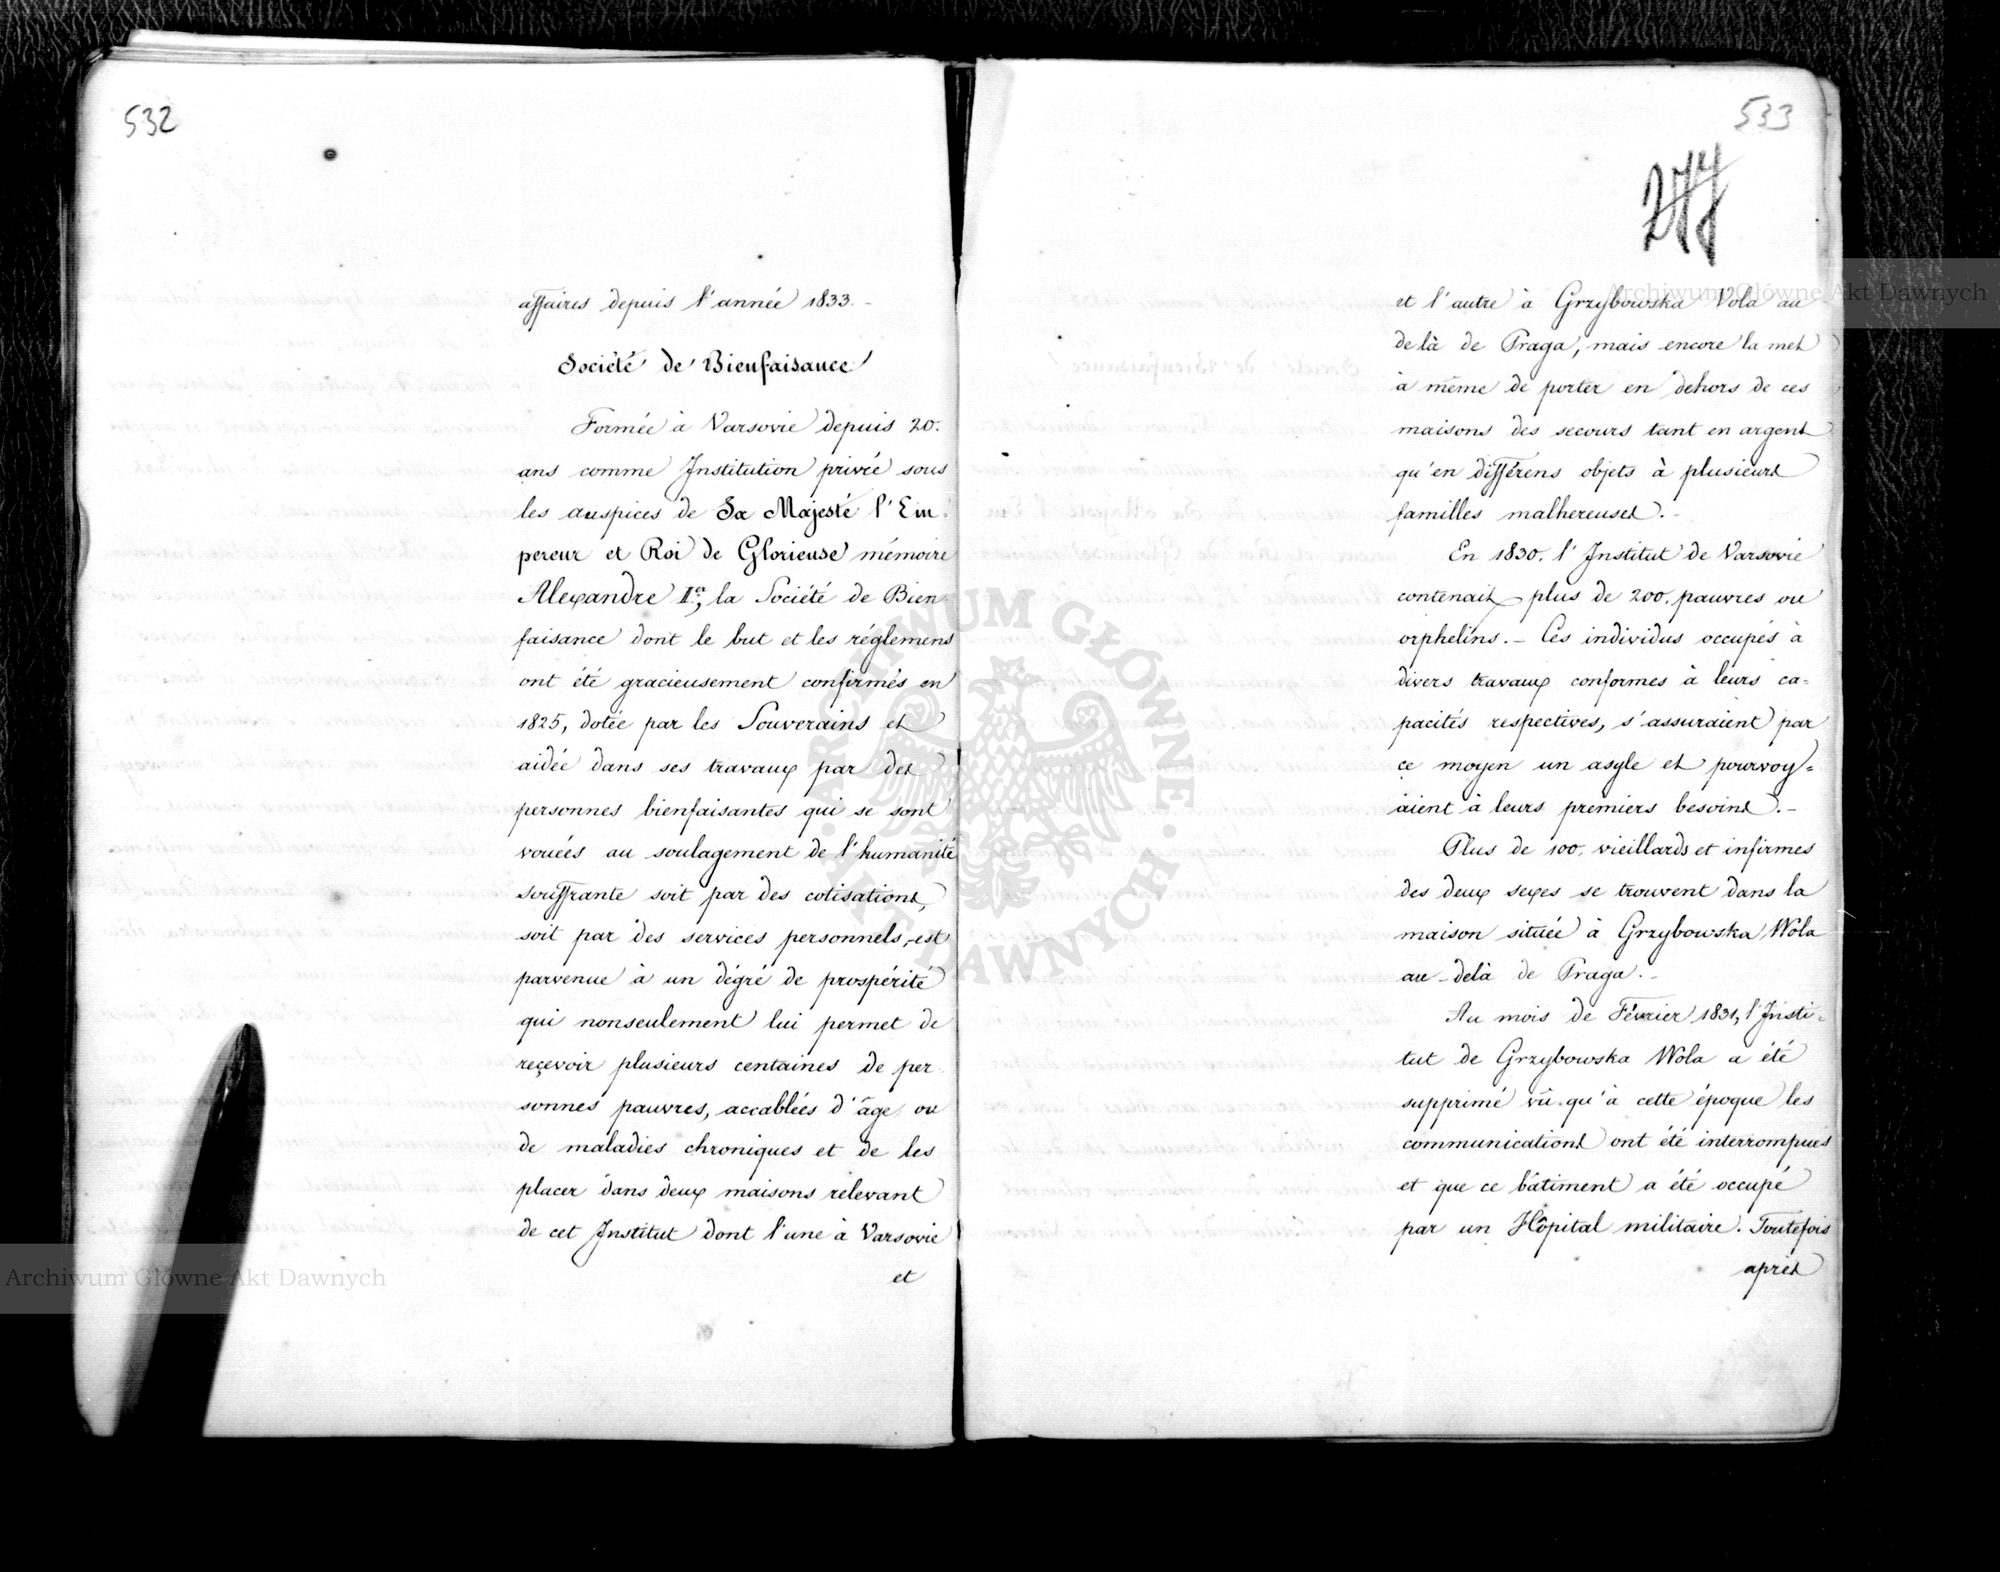 532
affaires depuis l'année 1833.-
Société de Bienfaisance
Formée à Varsovie depuis 20.
ans comme Institution privée sous
les auspices de Sa Majesté l'Em-
pereur et Roi de Glorieuse mémoire
Alexandre I.er, la Société de Bien-
faisance dont le but et les réglemens
ont été gracieusement confirmés en
1825, dotée par les Souverains et
aidée dans ses travaux par des
personnes bienfaisantes qui se sont
vouées au soulagement de l'humanité
souffrante soit par des cotisations,
soit par des services personnels, est
parvenue à un dégré de prospérité
qui nonseulement lui permet de
reçevoir plusieurs centaines de per-
sonnes pauvres, accablées d'âge ou
de maladies chroniques et de les
placer dans deux maisons relevant
de cet Institut dont l'une à Varsovie
et
533
277
et l'autre à Grzybowska Vola au
delà de Praga, mais encore la met
à même de porter en dehors de ces
maisons des secours tant en argent
qu'en différens objets à plusieurs
familles malhereuses.-
En 1830. l'Institut de Varsovie
contenait plus de 200. pauvres ou
orphelins.- Ces individus occupés à
divers travaux conformes à leurs ca=
pacités respectives, s'assuraient par
ce moyen un asyle et pourvoy=
aient à leurs premiers besoins.-
Plus de 100. vieillards et infirmes
des deux sexes se trouvent dans la
maison située à Grzybowska Wola
au-delà de Praga.-
Au mois de Février 1831, l'Insti=
tut de Grzybowska Wola a été
supprimé vû qu'à cette époque les
communications ont été interrompues
et que ce bâtiment a été occupé
par un Hôpital militaire. Toutefois
après
Archiwum Główne Akt Dawnych
Archiwum Główne Akt Dawnych
ARCHIWUM GŁÓWNE · AKT DAWNYCH ·